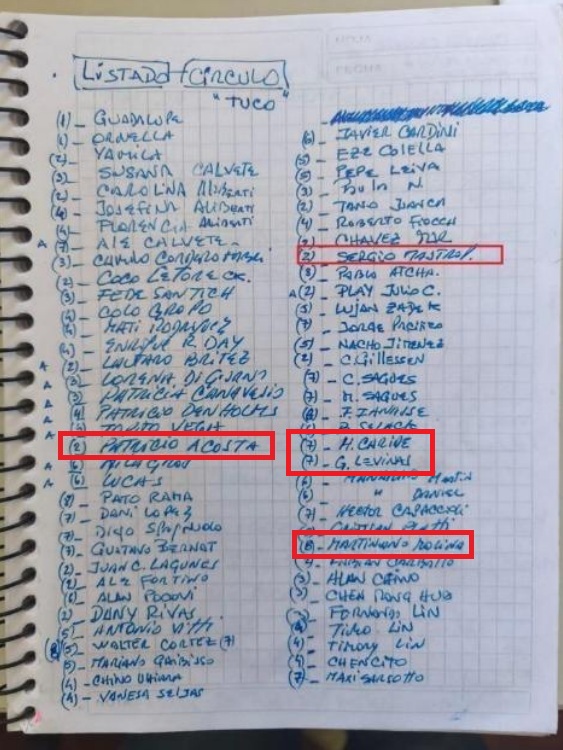 LISTADO CIRCULO
"TUCO"
(1) - GUADALUPE
(1) - ORNELLA
(2) - YAMILA
(3) - SUSANA CALVETE
(2) - CAROLINA ALIBERTI
(4) - JOSEFINA ALIBERTI
(4) - FLORENCIA ALIBERTI
A (7) - ALE CALVETE.
(3) - CAMILO CORDERO
(2) - COCO
(3) - FEDE SANTICH
(4) - COLO GROPO
(4) - MATI RODRIGUEZ
(4) - ENRIQUE R. DAY
(2) - LAUTARO BRITEZ
A (3) - LORENA DI GIORNO
A (3) - PATRICIA CANAVESIO
A (4) - PATRICIO DENHOLMS
VEGA
(2) PATRICIO ACOSTA
A (6) - MILAGROS
A (6) - LUCAS
(8) - PATO RAMA
(7) - DANI LOPEZ
(7) - DIEGO SPAGNUOLO
(7) - GUSTAVO BERNAT
(2) - JUAN C. LAGUNES
(2) - ALE FORTINO
(6) - ALAN POGOVI
(2) - DANY RIVAS
(5) - ANTONIO VITTI
(5) - WALTER CORTEZ (7)
(5) - MARIANO
(4) - CHINO
(4) - VANESA SEIJAS
(6) - JAVIER CARDINI
(5) - EZE COLELLA
(5) - PEPE LEIVA
(3) - N.
(2) - TANO BIANCA
(4) - ROBERTO FIOCCH
(2) - CHAVEZ
(2) - SERGIO MASTROP.
(3) - PABLO ATCHA.
A (2) - PLAY JULIO C.
(5) - LUJAN
(7) - JORGE
(5) - NACHO JIMENEZ
(2) - C. GILLESSEN
(7) - C. SAGUES
(7) - M. SAGUES
F. IANUSSE
(7) - M. CARIDE
(7) - G. LEVINAS
(6) - MARTIN
(6) - " DANIEL
(7) - HECTOR CAPACCIOLI
CRISTIAN
(8) - MARTINIANO MOLINA
FABIAN
(3) - ALAN CHINO
(3) - CHEN DONG HUB
(3) - FERNANDO LIN
(4) - TINO LIN
(4) - TIMONY LIN
(4) - CHENCITO
(7) - MAXI SARSOTTO